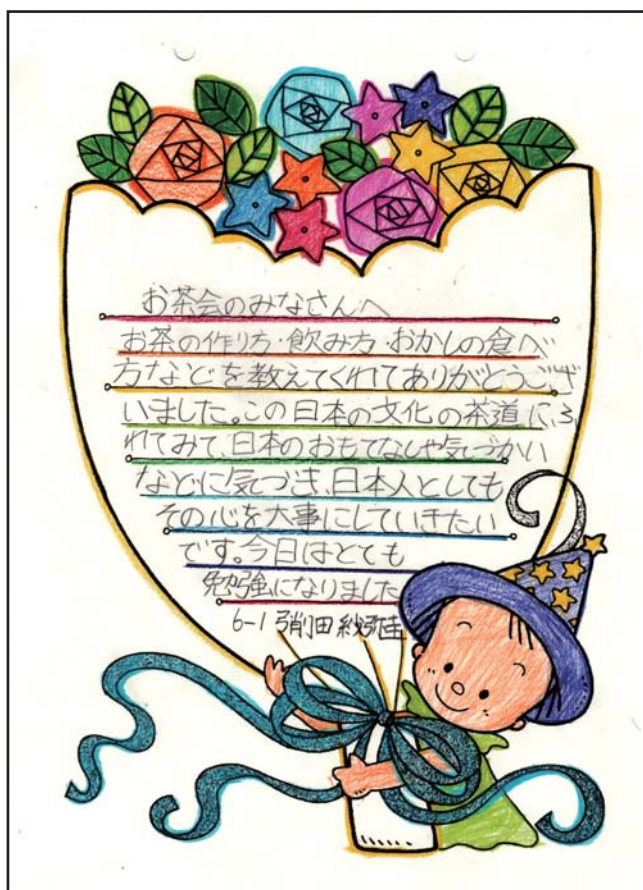 お茶会のみなさんへ
お茶の作り方・飲み方・おかしの食べ
方などを教えてくれてありがとうござ
いました。この日本の文化の茶道に、ふ
れてみて、日本のおもてなしや気づかい
などに気づき、日本人としても
その心を大事にしていきたい
です。今日はとても
勉強になりました
6-1 弓削田 紗弥佳